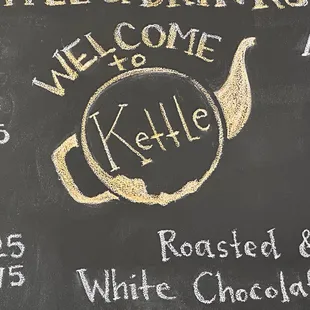 WELCOME
to
Kettle
25
Roasted &
75
White Chocola